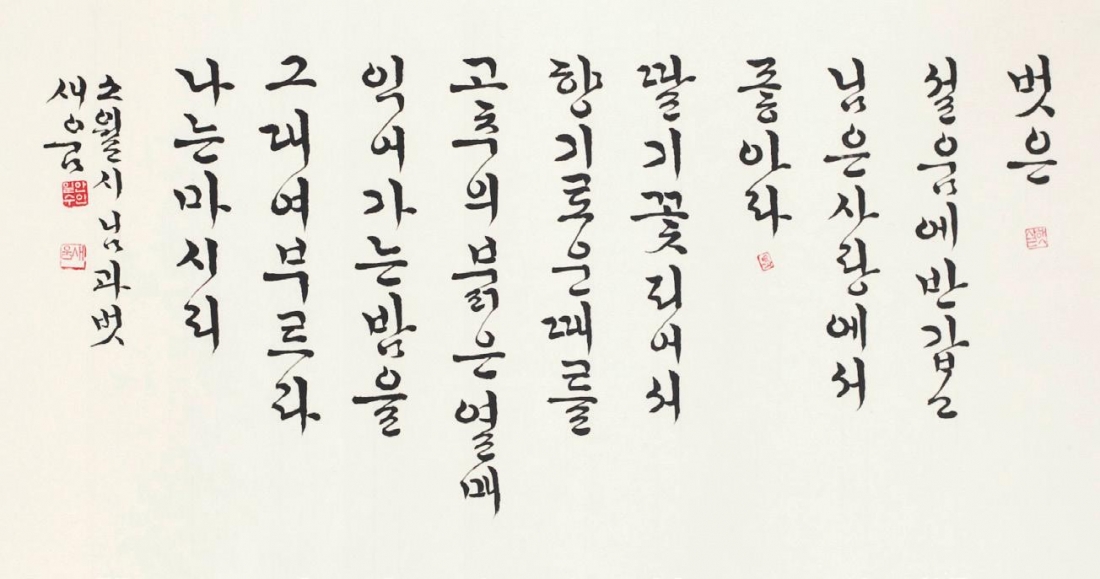 벗은
설움에반갑고
님은사랑에서
좋아라
딸기꽃피어서
향기로운때를
고추의붉은열매
익어가는밤을
그대여부르라
나는마시리
소월시님과벗
새움